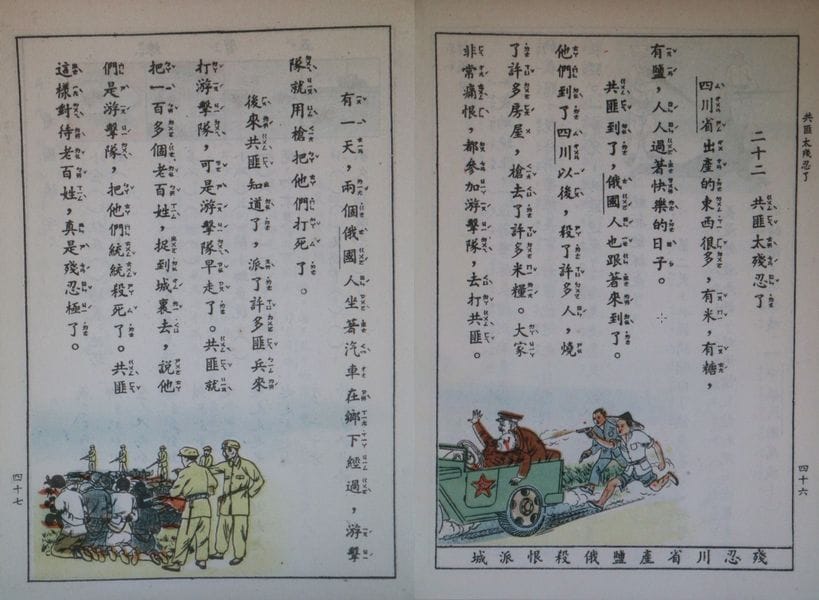 共匪太殘忍了
二十二 共匪太殘忍了
四川省出產的東西很多，有米，有糖，
有鹽，人人過著快樂的日子。
共匪到了，俄國人也跟著來到了。
他們到了四川以後，殺了許多人，燒
了許多房屋，搶去了許多米糧。大家
非常痛恨，都參加游擊隊，去打共匪。
殘忍川省產鹽俄殺恨派城
四十六
有一天，兩個俄國人坐著汽車在鄉下經過，游擊
隊就用槍把他們打死了。
後來共匪知道了，派了許多匪兵來
打游擊隊，可是游擊隊早走了。共匪就
把一百多個老百姓，捉到城裏去，說他
們是游擊隊，把他們統統殺死了。共匪
這樣對待老百姓，真是殘忍極了。
四十七